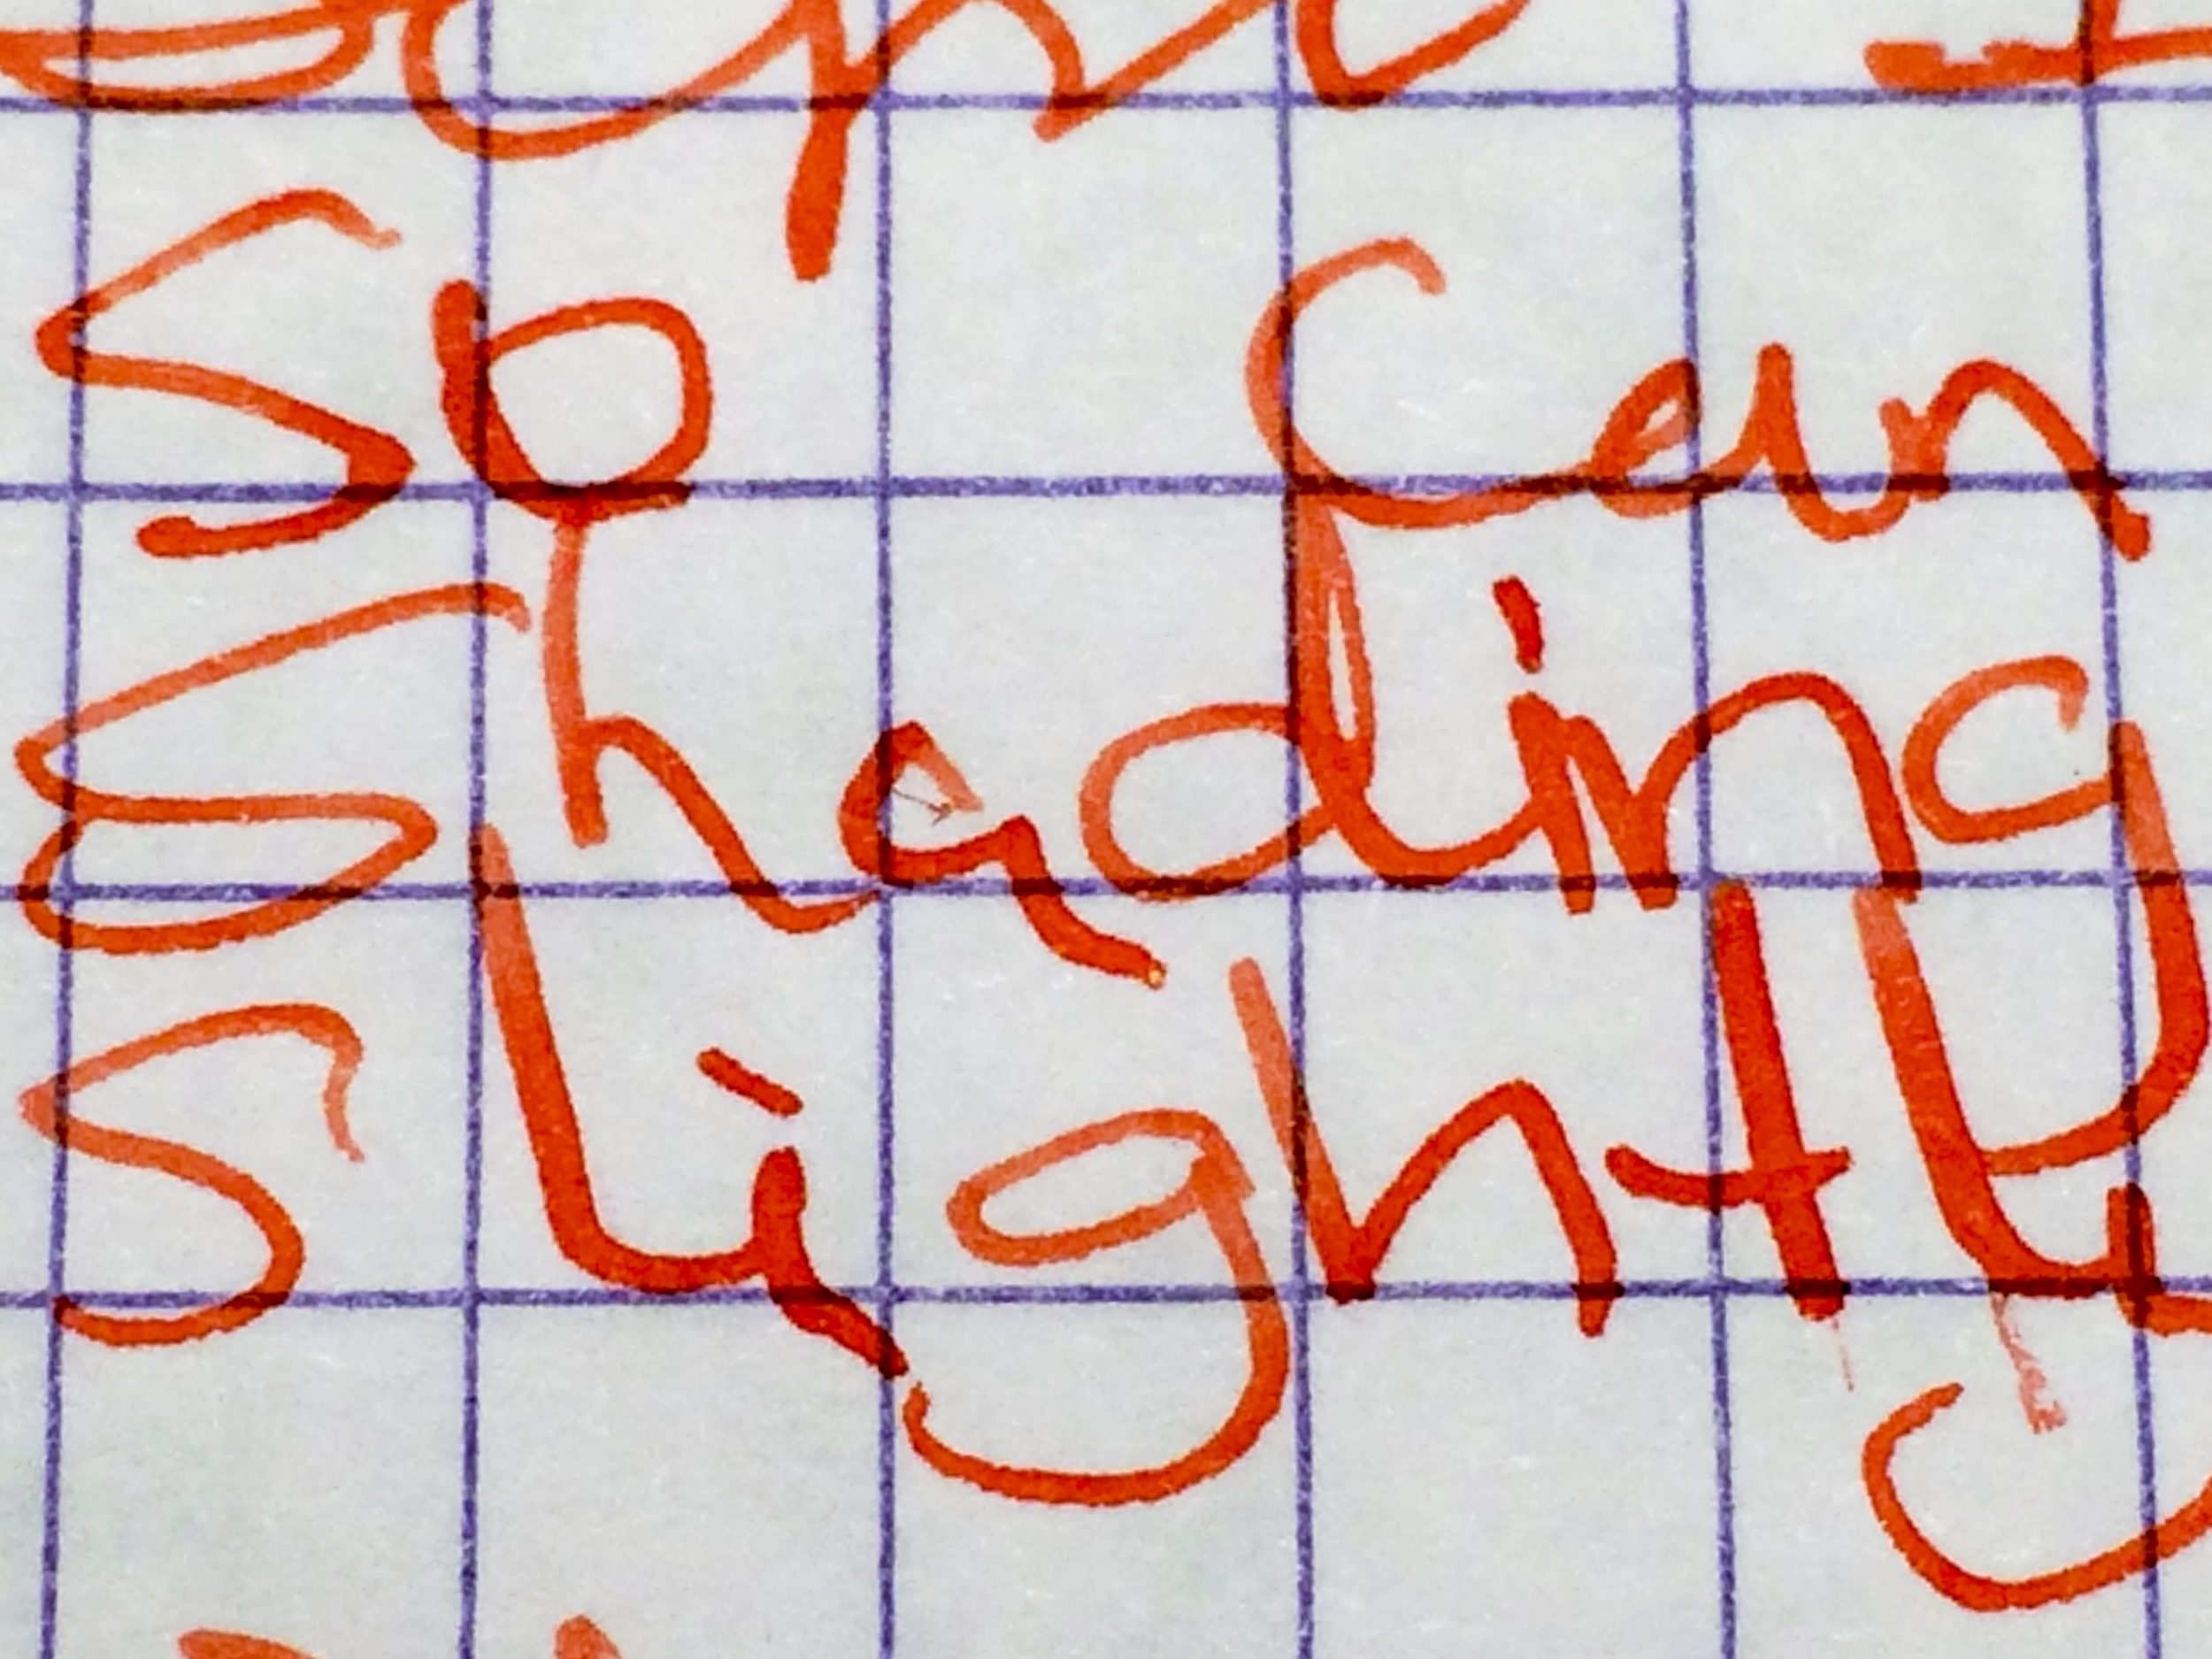 So Can
Shading
Slightly